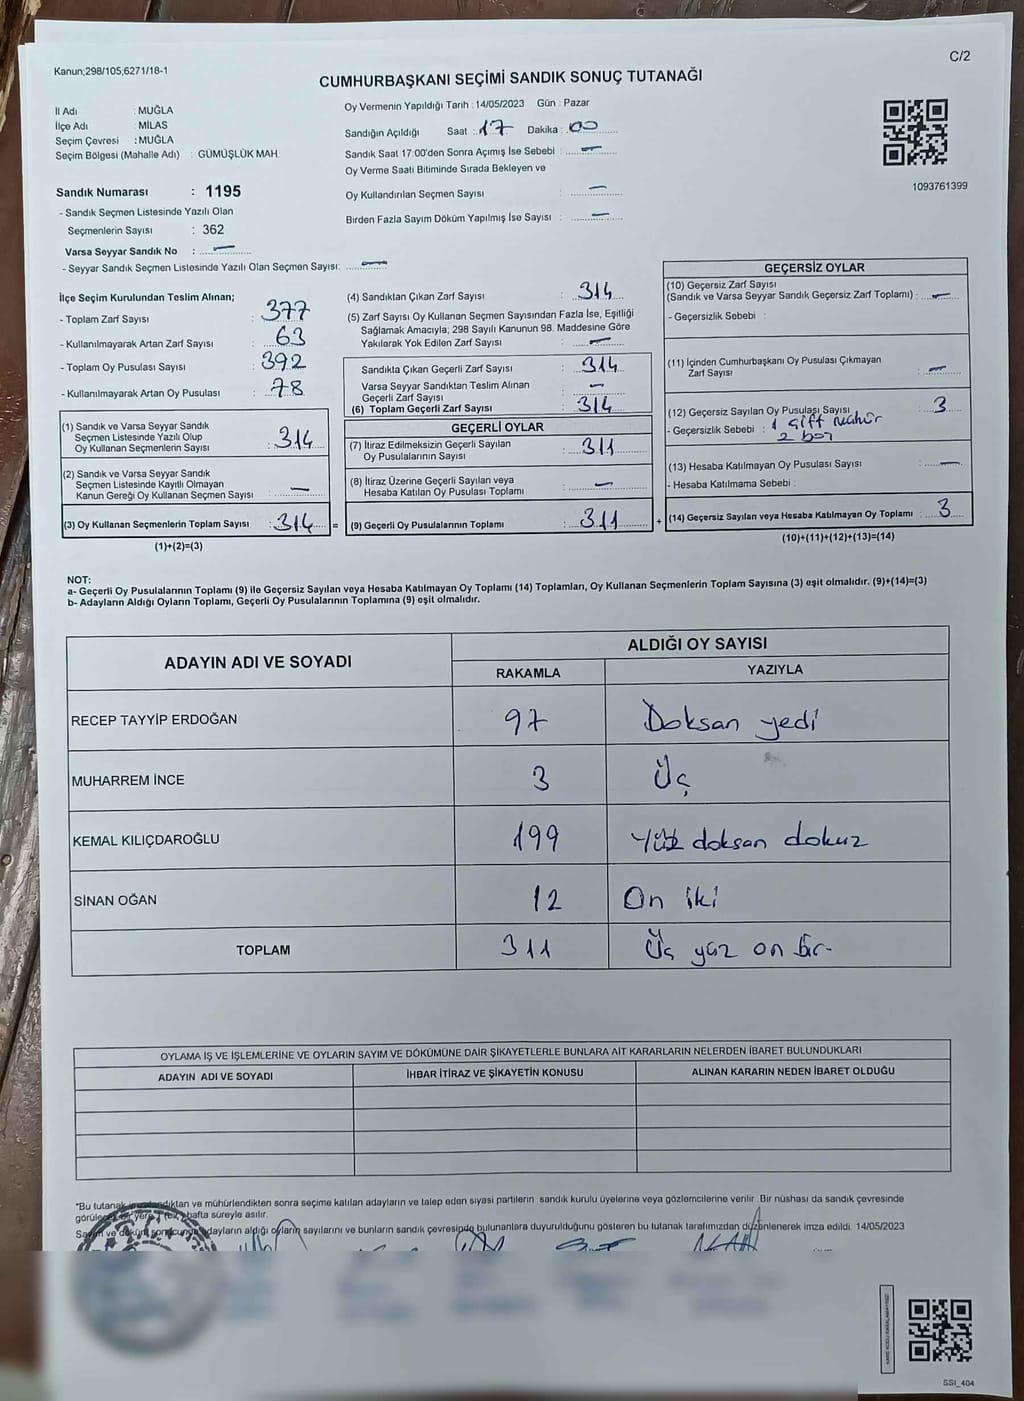 Kanun;298/105;6271/18-1
C/2
CUMHURBAŞKANI SEÇİMİ SANDIK SONUÇ TUTANAĞI
İl Adı : MUĞLA
İlçe Adı : MİLAS
Seçim Çevresi : MUĞLA
Seçim Bölgesi (Mahalle Adı) : GÜMÜŞLÜK MAH.
Sandık Numarası : 1195
- Sandık Seçmen Listesinde Yazılı Olan
Seçmenlerin Sayısı : 362
Varsa Seyyar Sandık No : —
- Seyyar Sandık Seçmen Listesinde Yazılı Olan Seçmen Sayısı: —
Oy Vermenin Yapıldığı Tarih : 14/05/2023 Gün : Pazar
Sandığın Açıldığı Saat : 17 Dakika : 00
Sandık Saat 17:00'den Sonra Açımış İse Sebebi : —
Oy Verme Saati Bitiminde Sırada Bekleyen ve
Oy Kullandırılan Seçmen Sayısı : —
Birden Fazla Sayım Döküm Yapılmış İse Sayısı : —
1093761399
İlçe Seçim Kurulundan Teslim Alınan;
- Toplam Zarf Sayısı : 377
- Kullanılmayarak Artan Zarf Sayısı : 63
- Toplam Oy Pusulası Sayısı : 392
- Kullanılmayarak Artan Oy Pusulası : 78
(1) Sandık ve Varsa Seyyar Sandık
Seçmen Listesinde Yazılı Olup
Oy Kullanan Seçmenlerin Sayısı : 314
(2) Sandık ve Varsa Seyyar Sandık
Seçmen Listesinde Kayıtlı Olmayan
Kanun Gereği Oy Kullanan Seçmen Sayısı : —
(3) Oy Kullanan Seçmenlerin Toplam Sayısı : 314 =
(1)+(2)=(3)
(4) Sandıktan Çıkan Zarf Sayısı : 314
(5) Zarf Sayısı Oy Kullanan Seçmen Sayısından Fazla İse, Eşitliği
Sağlamak Amacıyla; 298 Sayılı Kanunun 98. Maddesine Göre
Yakılarak Yok Edilen Zarf Sayısı : —
Sandıkta Çıkan Geçerli Zarf Sayısı : 314
Varsa Seyyar Sandıktan Teslim Alınan
Geçerli Zarf Sayısı : —
(6) Toplam Geçerli Zarf Sayısı : 314
GEÇERLİ OYLAR
(7) İtiraz Edilmeksizin Geçerli Sayılan
Oy Pusulalarının Sayısı : 311
(8) İtiraz Üzerine Geçerli Sayılan veya
Hesaba Katılan Oy Pusulası Toplamı : —
(9) Geçerli Oy Pusulalarının Toplamı : 311 +
GEÇERSİZ OYLAR
(10) Geçersiz Zarf Sayısı
(Sandık ve Varsa Seyyar Sandık Geçersiz Zarf Toplamı) : —
- Geçersizlik Sebebi :
(11) İçinden Cumhurbaşkanı Oy Pusulası Çıkmayan
Zarf Sayısı : —
(12) Geçersiz Sayılan Oy Pusulası Sayısı : 3
- Geçersizlik Sebebi : 1 çift mühür
2 boş
(13) Hesaba Katılmayan Oy Pusulası Sayısı : —
- Hesaba Katılmama Sebebi :
(14) Geçersiz Sayılan veya Hesaba Katılmayan Oy Toplamı : 3
(10)+(11)+(12)+(13)=(14)
NOT:
a- Geçerli Oy Pusulalarının Toplamı (9) ile Geçersiz Sayılan veya Hesaba Katılmayan Oy Toplamı (14) Toplamları, Oy Kullanan Seçmenlerin Toplam Sayısına (3) eşit olmalıdır. (9)+(14)=(3)
b- Adayların Aldığı Oyların Toplamı, Geçerli Oy Pusulalarının Toplamına (9) eşit olmalıdır.
ADAYIN ADI VE SOYADI
ALDIĞI OY SAYISI
RAKAMLA YAZIYLA
RECEP TAYYİP ERDOĞAN 97 Doksan yedi
MUHARREM İNCE 3 Üç
KEMAL KILIÇDAROĞLU 199 Yüz doksan dokuz
SİNAN OĞAN 12 On iki
TOPLAM 311 Üç yüz on bir
OYLAMA İŞ VE İŞLEMLERİNE VE OYLARIN SAYIM VE DÖKÜMÜNE DAİR ŞİKAYETLERLE BUNLARA AİT KARARLARIN NELERDEN İBARET BULUNDUKLARI
ADAYIN ADI VE SOYADI İHBAR İTİRAZ VE ŞİKAYETİN KONUSU ALINAN KARARIN NEDEN İBARET OLDUĞU
"Bu tutanak ve mühürlendikten sonra seçime katılan adayların ve talep eden siyasi partilerin sandık kurulu üyelerine veya gözlemcilerine verilir. Bir nüshası da sandık çevresinde
hafta süreyle asılır.
Sayım ve adayların aldığı oyların sayılarını ve bunların sandık çevresinde bulunanlara duyurulduğunu gösteren bu tutanak tarafımızdan düzenlenerek imza edildi. 14/05/2023
SSI_404